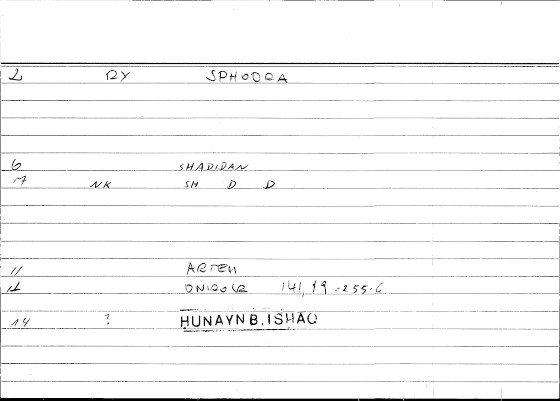 2 RY SPHODRA
6 SHADIDAN
7 NK SH D D
11 ARTEM
12 ONIROCR 141,19 = 255-6
14 ? HUNAYN B. ISHAQ